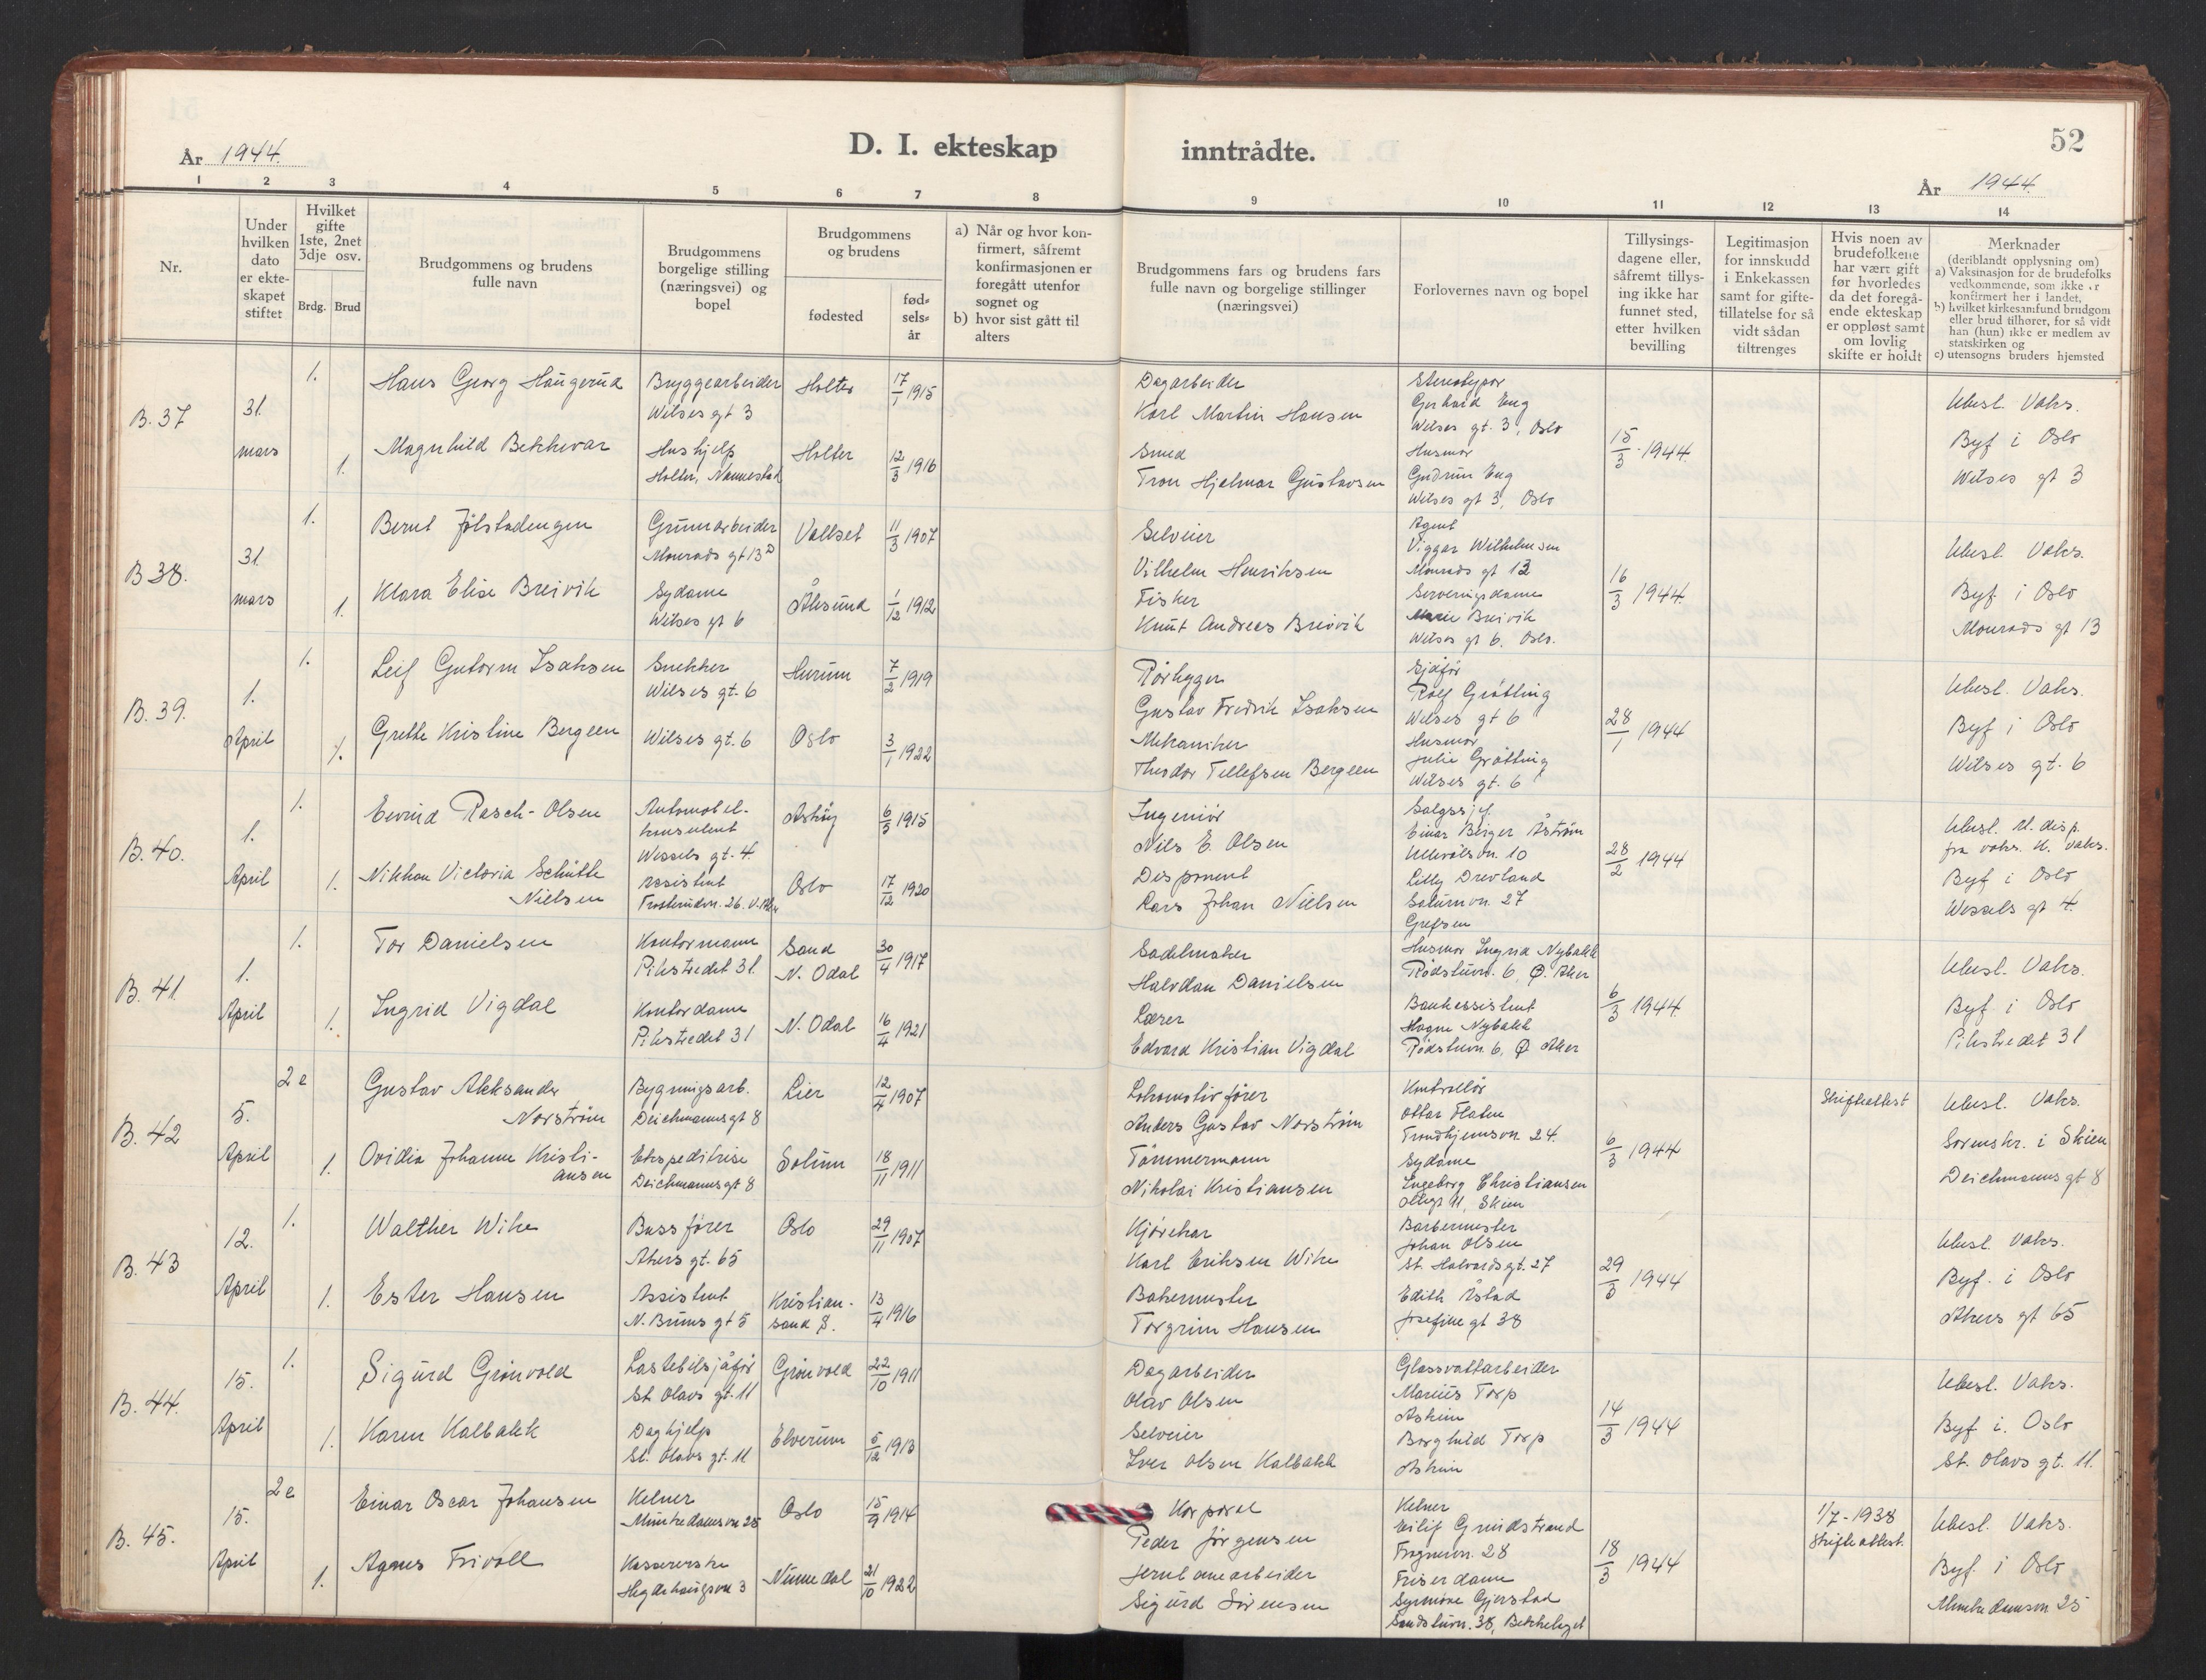 År 1944.
D. I. ekteskap inntrådte.
52
År 1944.
1 2 3 4 5 6 7 8 9 10 11 12 13 14
Nr.
Under hvilken dato er ekteskapet stiftet
Hvilket gifte 1ste, 2net 3dje osv.
Brdg. Brud
Brudgommens og brudens fulle navn
Brudgommens borgelige stilling (næringsvei) og bopel
Brudgommens og brudens
fødested
fødselsår
a) Når og hvor konfirmert, såfremt konfirmasjonen er foregått utenfor sognet og
b) hvor sist gått til alters
Brudgommens fars og brudens fars fulle navn og borgelige stillinger (næringsvei)
Forlovernes navn og bopel
Tillysingsdagene eller, såfremt tillysing ikke har funnet sted, etter hvilken bevilling
Legitimasjon for innskudd i Enkekassen samt for giftetillatelse for så vidt sådan tiltrenges
Hvis noen av brudefolkene har vært gift før hvorledes da det foregående ekteskap er oppløst samt om lovlig skifte er holdt
Merknader
(deriblandt opplysning om)
a) Vaksinasjon for de brudefolks vedkommende, som ikke er konfirmert her i landet,
b) hvilket kirkesamfund brudgom eller brud tilhører, for så vidt han (hun) ikke er medlem av statskirken og
c) utensogns bruders hjemsted
B. 37
31. mars
1.
Hans Georg Haugerud
Bryggearbeider
Wilses gt 3
Holter
17/1 1915
Dagarbeider
Karl Martin Hansen
Stereotypør
Gerhard Eng
Wilses gt. 3, Oslo
15/3 - 1944
Ubesl. Vaks.
Byf i Oslo
Wilses gt 3
1.
Magnhild Bekkevar
Hushjelp
Holter, Nannestad
Holter
12/3 1916
Smed
Tron Hjelmar Gustavsen
Husmor
Gudrun Eng
Wilses gt 3, Oslo
B 38.
31. mars
1.
Bernt Jølstadengen
Grunnarbeider
Mourads gt 13
Vallset
11/3 1907
Selveier
Vilhelm Henriksen
Agent
Viggar Wilhelmsen
Mourads gt 13
16/3 1944.
Ubesl. Vaks.
Byf. i Oslo
Mourads gt 13
1.
Klara Elise Breivik
Sydame
Wilses gt 6
Ålesund
1/12 1912
Fisker
Knut Andreas Breivik
Serveringsdame
Marie Breivik
Wilses gt 6. Oslo.
B. 39.
1. April
1.
Leif Gutorm Isaksen
Snekker
Wilses gt. 6
Hurum
7/2 1919
Rørlegger
Gustav Fredrik Isaksen
Sjåfør
Rolf Grøtting
Wilses gt 6
28/1 1944
Ubesl. Vaks.
Byf i Oslo
Wilses gt. 6
1.
Grethe Kristine Bergeen
Wilses gt. 6
Oslo
3/1 1922
Mekaniker
Theodor Tellefsen Bergeen
Husmor
Julie Grøtting
Wilses gt. 6
B. 40.
1. April
1.
Eivind Rasch-Olsen
Automobilkonsulent
Wessels gt. 4.
Askøy
6/5 1915
Ingeniør
Nils E. Olsen
Salgssjef.
Einar Birger Åstrøm
Ullevålsvn. 10
28/2 1944
Ubesl. M. disp.
fra vaks. K. vaks.
Byf i Oslo
Wessels gt 4.
1.
Nikken Victoria Schütte Nielsen
Assistent
Frosterudvn. 26. V. Aker
Oslo
17/12 1920
Disponent
Lars Johan Nielsen
Lilly Drevland
Saturnvn. 27
Grefsen
B. 41.
1. April
1.
Tor Danielsen
Kontormann
Pilestredet 31.
Sand
N. Odal
30/4 1917
Sadelmaker
Halvdan Danielsen
Husmor Ingrid Nybakk
Rødstuvn. 6, Ø. Aker
6/3 1944.
Ubesl. Vaks.
Byf i Oslo
Pilestredet 31
1.
Ingrid Vigdal
Kontordame
Pilestredet 31
N. Odal
16/4 1921
Lærer
Edvard Kristian Vigdal
Bankassistent
Hagne Nybakk
Rødstuvn. 6, Ø. Aker
B. 42
5. April
2e
Gustav Aleksander Norstrøm
Bygningsarb.
Deichmannsgt 8
Lier
12/4 1907
Lokomotivfører
Anders Gustav Norstrøm
Kontrollør
Ottar Flaten
Trondhjemsvn. 24.
6/3 1944
Skifteattest
Ubesl. Vaks.
Sorenskr. i Skien
Deichmannsgt 8
1.
Ovidia Johanne Kristiansen
Ekspeditrise
Deichmannsgt 8
Solum
18/11 1911
Tømmermann
Nikolai Kristiansen
Sydame
Ingeborg Christiansen
11, Skien
B. 43
12. April
1.
Walther Wike
Bussfører
Akers gt. 65
Oslo
29/11 1907
Kjørekar
Karl Eriksen Wike
Barbermester
Johan Olsen
St. Halvards gt. 27
29/3 1944
Ubesl. Vaks.
Byf. i Oslo
Akers gt 65
1.
Ester Hansen
Assistent
N. Bruns gt 5
Kristiansand S.
13/4 1916
Bakermester
Torgrim Hansen
Edith Åstad
Josefine gt 38
B. 44.
15. April
1.
Sigurd Grønvold
Lastebilsjåfør
St. Olavs gt. 11
Grønvold
22/10 1911
Dagarbeider
Olav Olsen
Glassvattarbeider
Marius Torp
Askim
14/3 1944
Ubesl. Vaks.
Byf i. Oslo
St. Olavs gt. 11.
1.
Karen Kalbakk
Daghjelp
St. Olavs gt. 11
Elverum
5/12 1913
Selveier
Iver Olsen Kalbakk
Borghild Torp
Askim
B. 45.
15. April
2e
Einar Oscar Johansen
Kelner
Munkedamsvn 25
Oslo
15/9 1914
Korporal
Peder Jørgensen
Kelner
Eilif Grindstrand
Frognervn. 28
18/3 1944
1/7 - 1938
Skifteattest.
Ubesl. Vaks.
Byf. i Oslo
Munkedamsvn 25
1.
Agnes Trivoll
Kassererske
Hegdehaugsvn 3
Numedal
21/10 1922
Jernbanearbeider
Sigurd Sørensen
Friserdame
Synnøve Gjerstad
Sandstuvn. 38, Bekkelaget